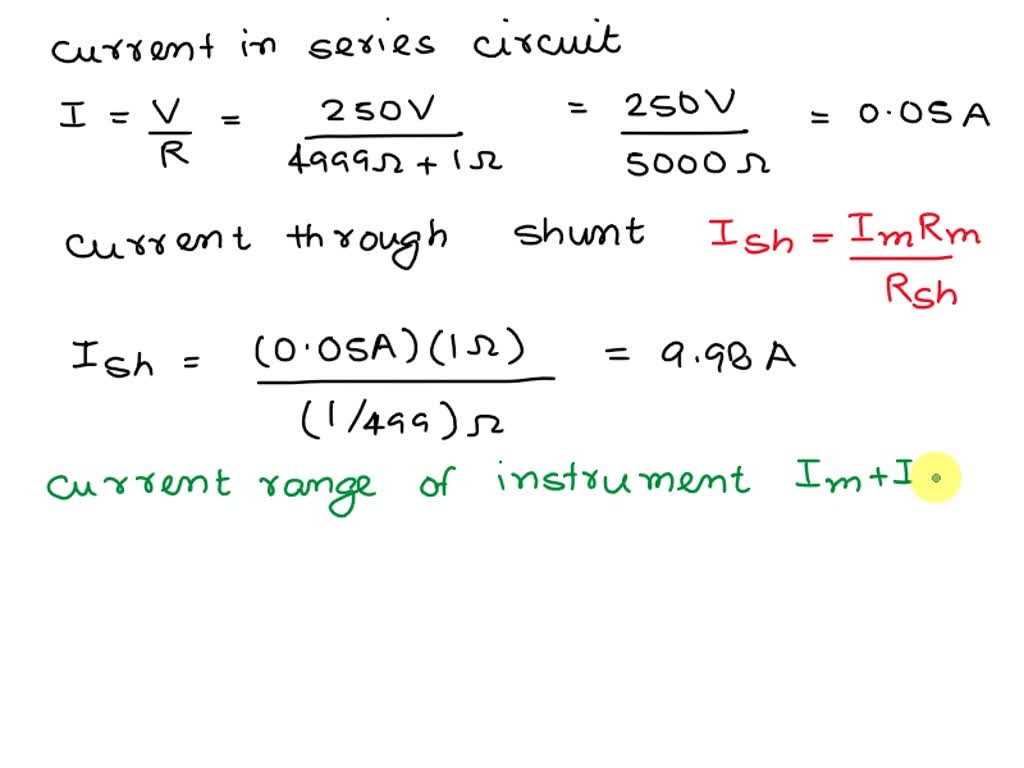 current in series circuit
I = V/R = 250V/4999Ω + 1Ω = 250V/5000Ω = 0.05A
current through shunt I_sh = I_m R_m/R_sh
I_sh = (0.05A)(1Ω)/(1/499)Ω = 9.98 A
current range of instrument I_m + I